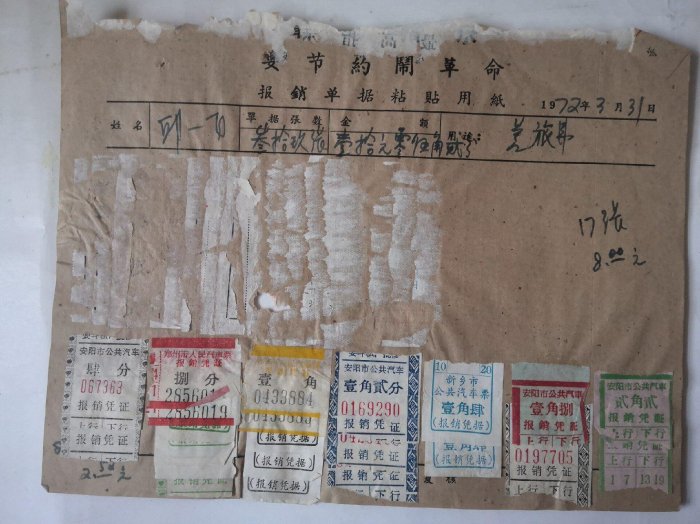 要节約鬧革命
报銷单据粘貼用紙
1972年3月31日
姓名
單据张数
金额
叁拾玖张
壹拾元零伍角贰分
差旅费
17张
8.00元
安阳市公共汽车
肆分
067363
报销凭证
2.50元
郑州市人民汽车票
报销凭证
捌分
2856019
壹角
0433884
(报销凭据)
(报销凭据)
安阳市公共汽车
壹角贰分
0169290
报销凭证
报销凭证
上行 下行
10 20
新乡市
公共汽车票
壹角肆
(报销凭证)
(报销凭证)
安阳市公共汽车
壹角捌
报销凭证
0197705
报销凭证
上行 下行
安阳市公共汽车
贰角贰
报销凭证
上行 下行
上行 下行
1 7 13 19
复核